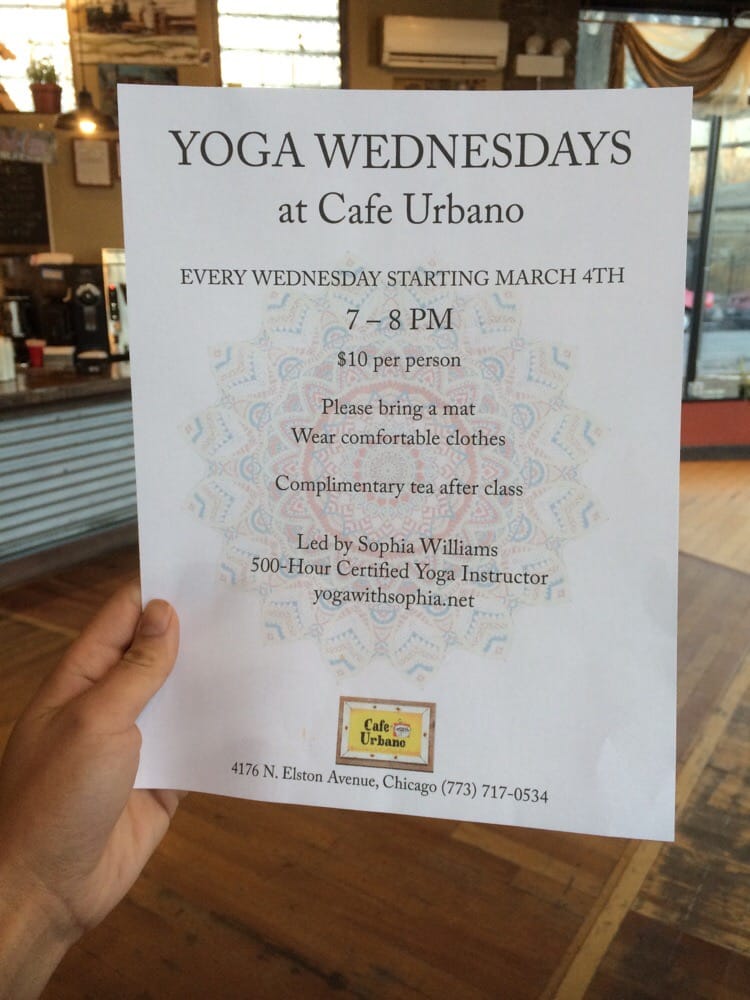 YOGA WEDNESDAYS
at Cafe Urbano
EVERY WEDNESDAY STARTING MARCH 4TH
7 – 8 PM
$10 per person
Please bring a mat
Wear comfortable clothes
Complimentary tea after class
Led by Sophia Williams
500-Hour Certified Yoga Instructor
yogawithsophia.net
Cafe
Urbano
4176 N. Elston Avenue, Chicago (773) 717-0534